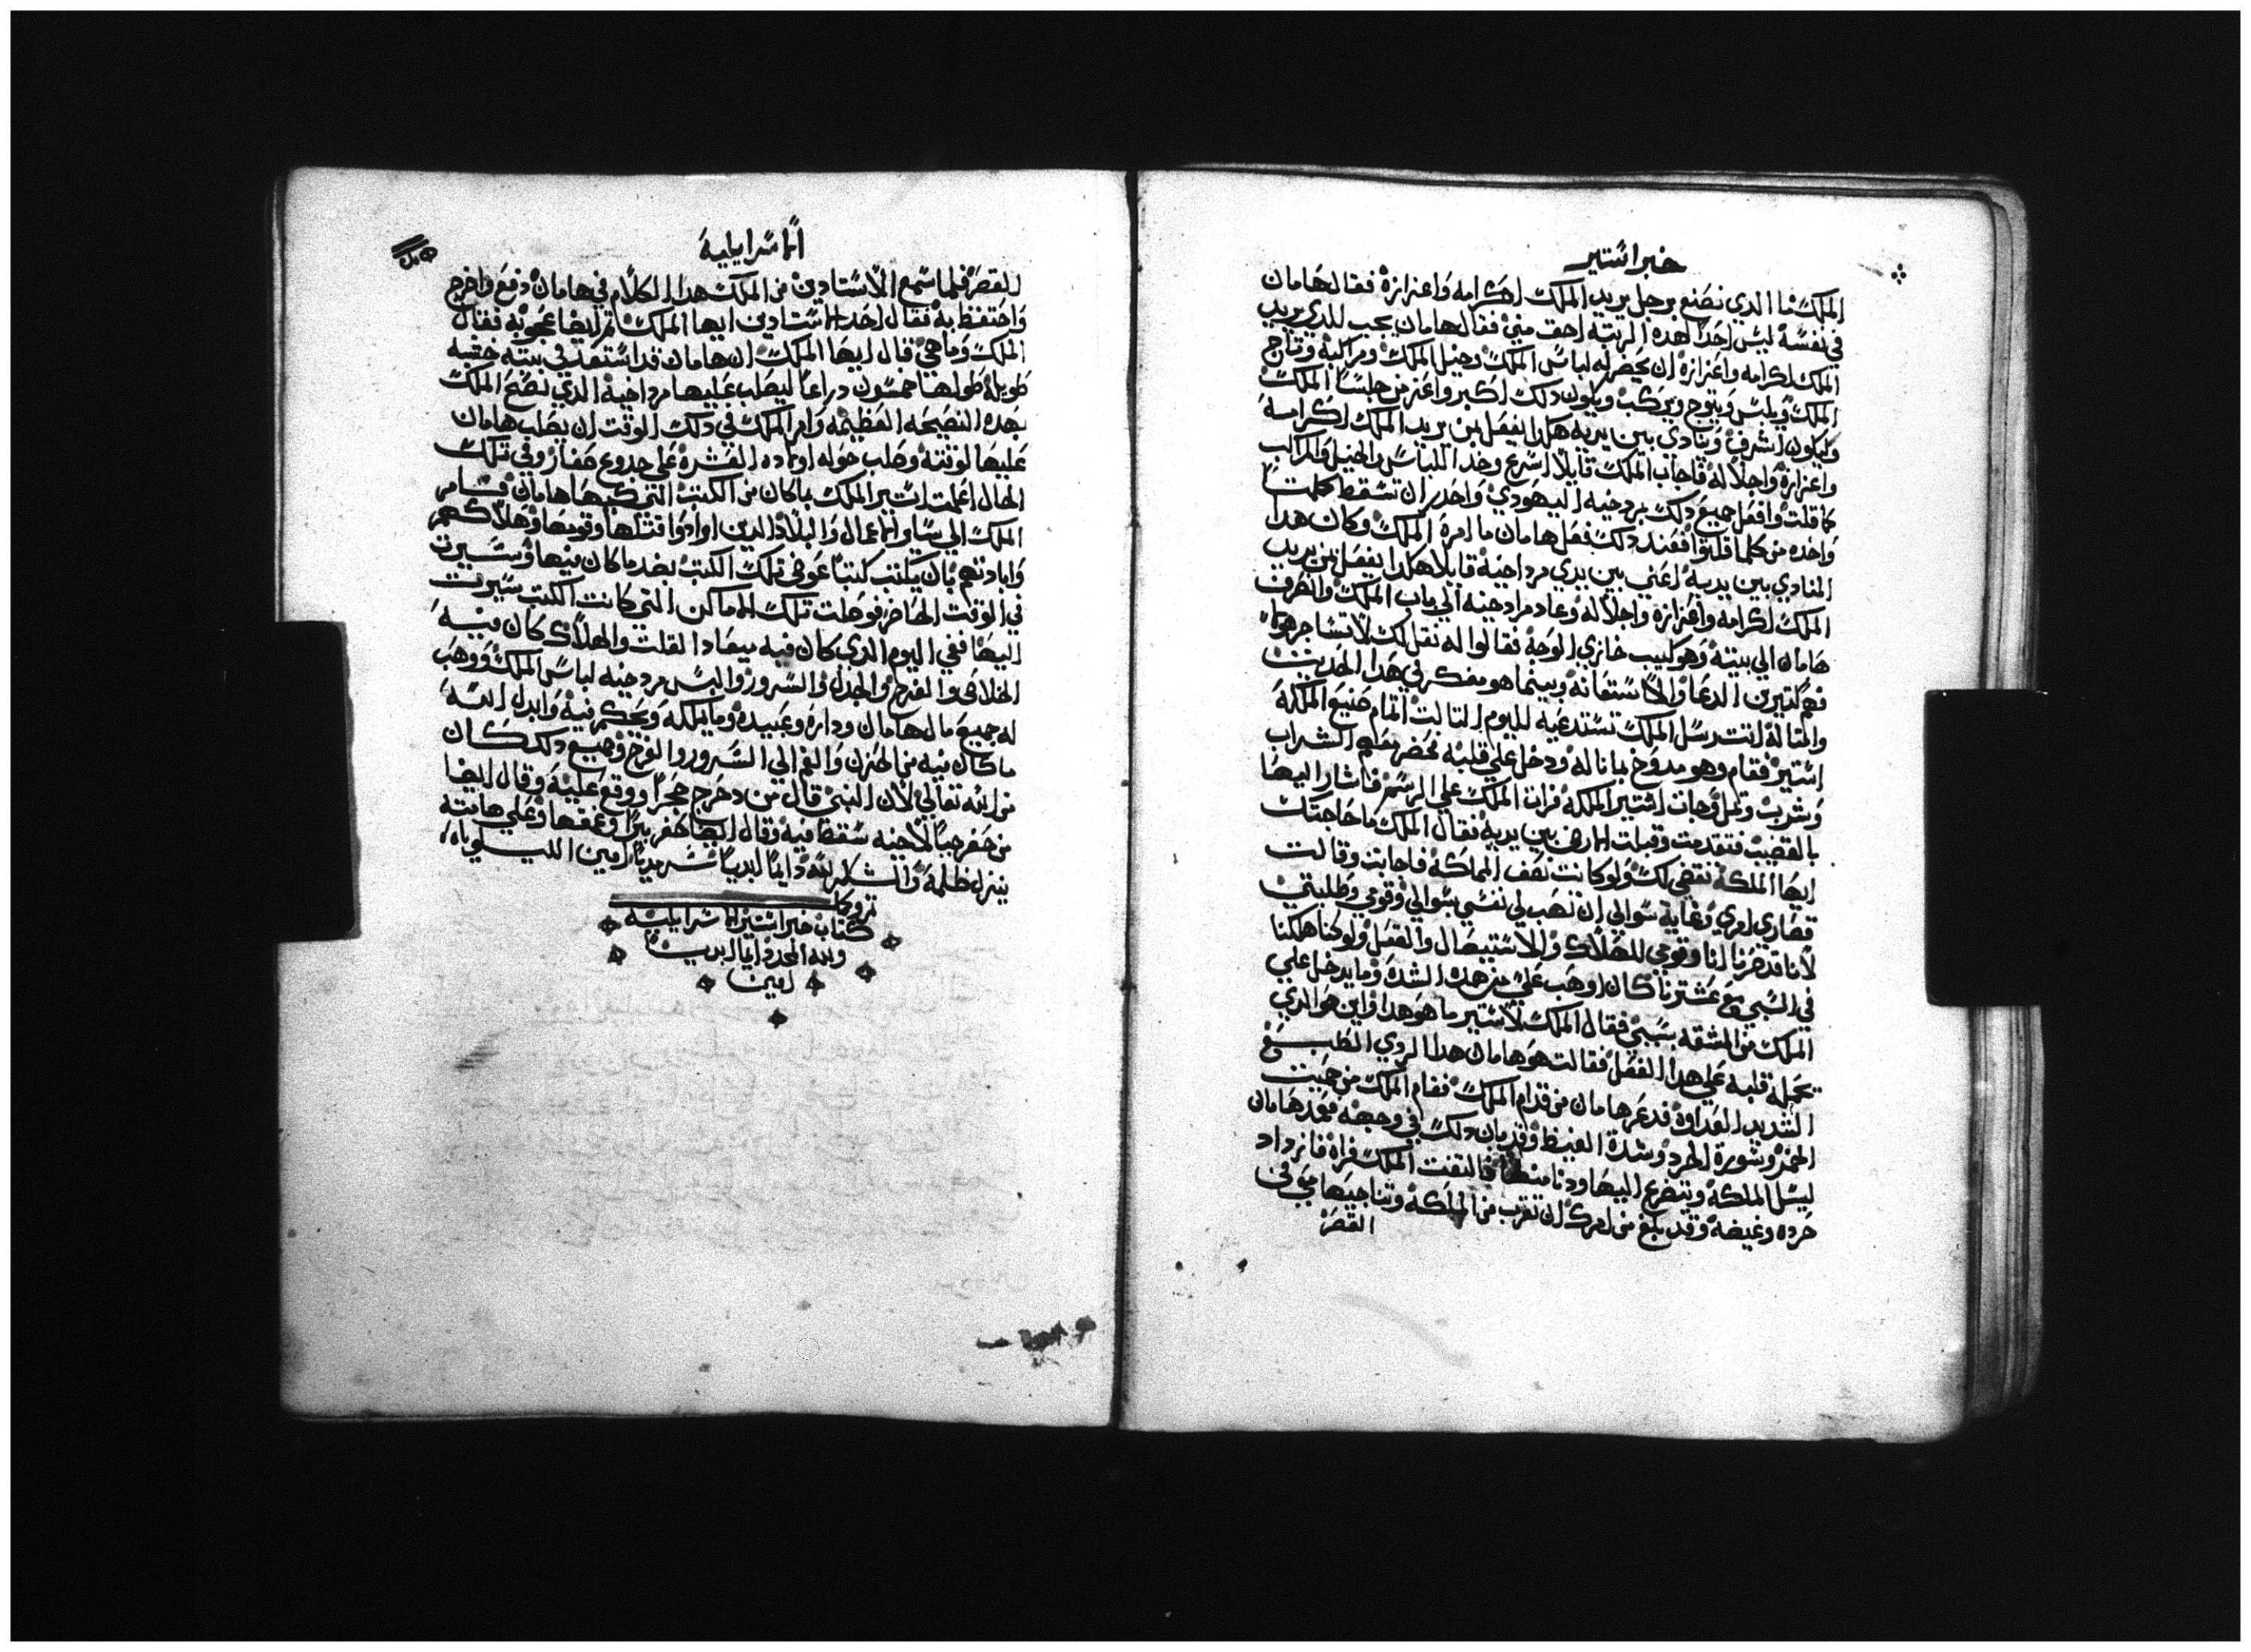 خبر استير
الملك ما الدي نصنع برجل يريد الملك اكرامه واعزازه فقال هامان
في نفسه ليس احدا لهده الرتبه احق مني فقال هامان يجب للدي يريد
الملك اكرامه واعزازه ان يحضر له لباس الملك وخيل الملك ومراكبه وتاج
الملك ويلبس ويتوج ويركب ويكون دلك اكبر واعز من جلسا الملك
وليكون اشرف وينادي بين يديه هكدا يفعل بمن يريد الملك اكرامه
واعزازه واجلاله فاجاب الملك قايلا اسرع وخد اللباس والخيل والمراكب
كما قلت وافعل جميع دلك بمردخيه اليهودي واحدر ان تسقط كلمتا
واحده من كلما قلته فعند دلك فعل هامان ما امره الملك وكان هدا
المنادي بين يديه اعني بين يدي مرداخيه قايلا هكدا يفعل بمن يريد
الملك اكرامه واعزازه واجلاله وعاد مرادخيه الي باب الملك وانصرف
هامان الي بيته وهو كييب خازي الوجه فقالوا له نقل لك لا تشاجر هولا
فهم كتيرين الدعا والاستغاثه وبينما هو مفكر في هدا الحديت
والمتاله اتت رسل الملك تستدعيه لليوم التالت اتمام صنيع الملكه
استير فقام وهو مدوخ بما ناله ودخل علي قلبه فحضر معهم الشراب
وشرب وتمل وجات استير الملكه فرات الملك علي الرسم فاشار اليها
بالقضيب فتقدمت وقبلت الارض بين يديه فقال الملك ما حاجتك
ايها الملكه ننقضي لك ولو كانت نصف المملكه فاجابت وقالت
قصاري امري وغاية سوالي ان تهب لي نفسي بسوالي وقومي وطلبتي
لاننا قد صرنا انا وقومي للهلاك والاستيصال والقتل ولو كنا هلكنا
في السبي مع عشترنا كان اوهب علي من هده الشده وما يدخل علي
الملك من المشقه بسببي فقال الملك لاستير ما هو هدا واين هو الدي
تحمله قلبه علي هدا الفعل فقالت هو هامان هدا الردي الطبع
الشديد العداوه فدعر هامان من قدام الملك فقام الملك من حميت
الخمر وسورة الحرد وشدة الغيظ وقد بان دلك في وجهه فعمد هامان
ليسل الملكه ويتضرع اليها ودنا منها فالتفت الملك فراه فازداد
حرده وغيضه وقد بلغ من امرك ان تقرب من الملكه وتناجيها معي في
القصر
الاسرايليه
القصر فلما سمع الاستادين من الملك هدا الكلام في هامان دفع واخرج
واحتفظ به فقال احد الاستادين ايها الملك تم ايضا عجوبه فقال
الملك وما هي قال ايها الملك ان هامان قد استعد في بيته خشبه
طويله طولها خمسون دراعا ليصلب عليها مرداخيه الدي نصع الملك
بهده النصيحه العظيمه وامر الملك في دلك الوقت ان يصلب هامان
عليها لوقته وصلب حوله اولاده العشره علي جدوع صغار وفي تلك
الحال اعلمت استير الملك بما كان من الكتب التي كتبها هامان فامر
الملك الي ساير الاعمال والبلاد الدين ارادوا قتلها وقومها وهلاكهم
وابادتهم بان يكتب كتبا عوض تلك الكتب بضد ما كان فيها وسيرت
في الوقت الحاضر فوصلت تلك الاماكن التي كانت الكتب سيرت
اليها ففي اليوم الدي كان فيه ميعاد القتل والهلاك كان فيه
الخلاص والفرح والجدل والسرور والبس مردخيه لباس الملك ووهب
له جميع مال هامان وداره وعبيده وما يملكه وتحكم فيه وابدل الله
ما كان فيه من الحزن والغم الي السرور والفرح وجميع دلك كان
من الله تعالي لان النبي قال من دحرج حجرا ووقع عليه وقال ايضا
من حفر جبا لاخيه سقط فيه وقال ايضا حفر بيرا وعمقها وعلي هامته
ينزل ظلمه والشكر لله دايما ابديا سرمديا امين الليلوياه
تم وكمل
كتاب خبر استير الاسرايليه
ولله المجد دايما ابديا
امين